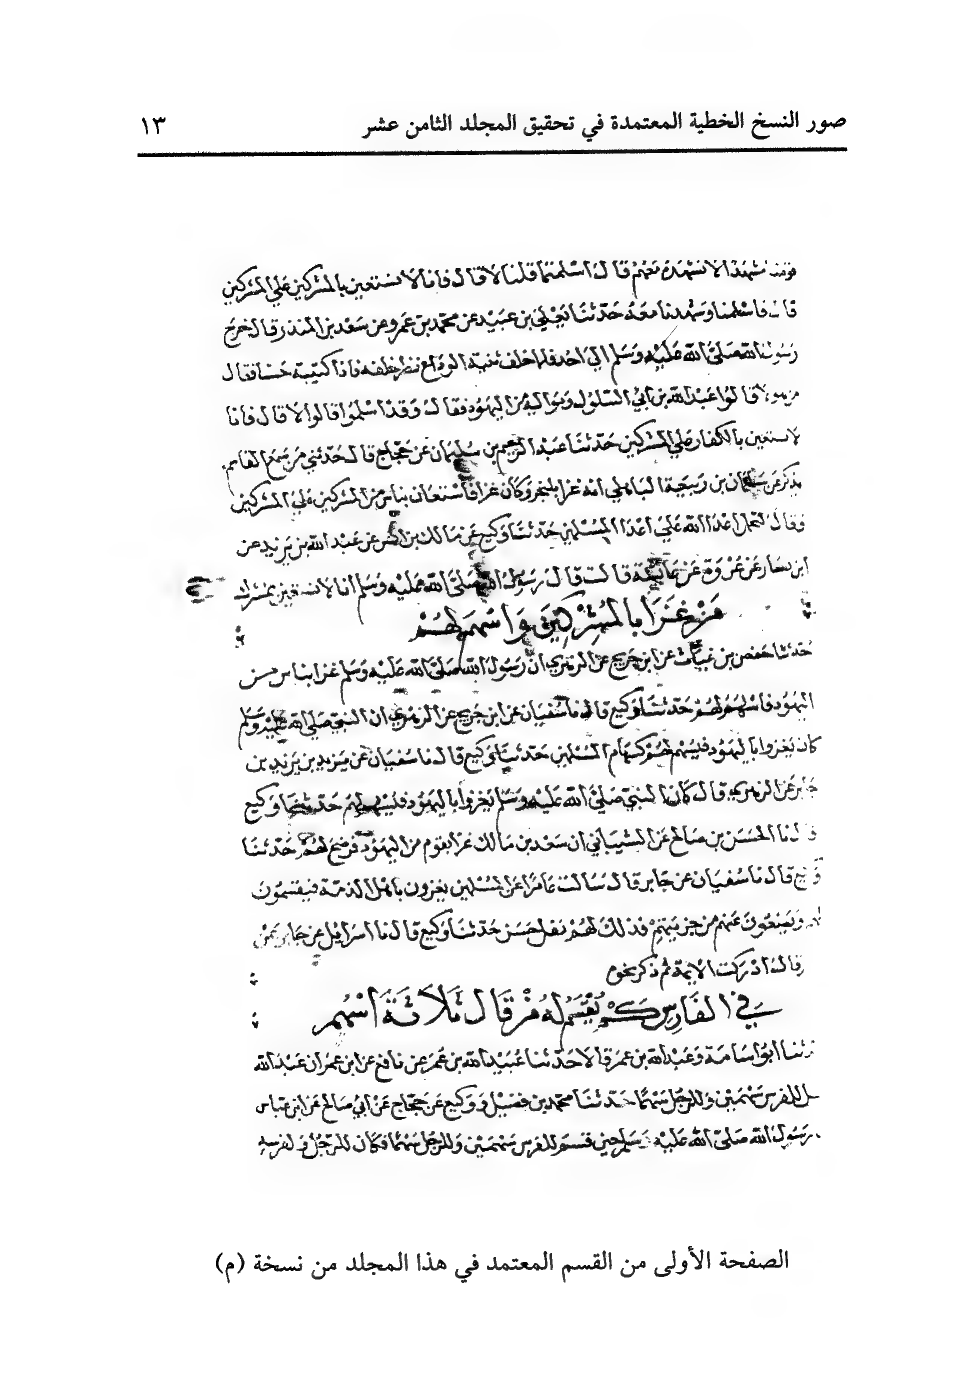 صور النسخ الخطية المعتمدة في تحقيق المجلد الثامن عشر ١٣
شهدا لا نشهده معهم قال اسلمتما قلنا لا قال فانا لا نستعين بالمشركين علي المشركين
قال فاسلمنا وشهدنا معه حدثنا يعلي بن عبيد عن محمد بن عمرو عن سعد بن المنذر قال خرج
رسول الله صلي الله عليه وسلم الي احد فلما خلف ثنية الوداع نظر خلفه فاذا كتيبة خشنا فقال
من هولا قالوا عبد الله بن ابي السلول ومواليه من اليهود فقال وقد اسلموا قالوا لا قال فانا
لا نستعين بالكفار علي المشركين حدثنا عبد الرحيم بن سليمان عن حجاج قال حدثني من سمع القاسم
يذكر عن سلمان بن ربيعة الباهلي انه غزا بلنجر وكان غزا فاستعان بناس من المشركين علي المشركين
فقال لنحمل اعدا الله علي اعدا المسلمين حدثنا وكيع عن مالك بن انس عن عبد الله بن يزيد عن
ابن نيار عن عروة عن عايشة قالت قال رسول الله صلي الله عليه وسلم انا لا نستعين بمشرك
من غزا بالمشركين واسهم لهم
حدثنا حفص بن غياث عن ابن جريج عن الزهري ان رسول الله صلي الله عليه وسلم غزا بناس من
اليهود فاسهم لهم حدثنا وكيع قال نا سفيان عن ابن جريج عن الزهري ان النبي صلي الله عليه وسلم
كان يغزوا باليهود فيسهم لهم كسهام المسلمين حدثنا وكيع قال نا سفيان عن يزيد بن يزيد بن
جابر عن الزهري قال كان النبي صلي الله عليه وسلم يغزوا باليهود فيسهم لهم حدثنا وكيع
قال نا الحسن بن صالح عن الشيباني ان سعد بن مالك غزا بقوم من اليهود فرضخ لهم حدثنا
وكيع قال نا سفيان عن جابر قال سالت عامرا عن المسلمين يغزون باهل الذمة فيقسمون
لهم ويضعون عنهم من جزيتهم فذلك لهم نفل حسن حدثنا وكيع قال نا اسرائيل عن جابر عن
قال ادركت الايمة ثم ذكر نحوه
في الفارس كم يقسم له من قال ثلاثة اسهم
حدثنا ابو اسامة وعبد الله بن عمر قالا حدثنا عبيد الله بن عمر عن نافع عن ابن عمر ان عبد الله
للفرس سهمين وللرجل سهما حدثنا محمد بن فضيل ووكيع عن حجاج عن ابي صالح عن ابن عباس
رسول الله صلي الله عليه وسلم حنين قسم للفرس سهمين وللرجل سهما فكان للرجل ولفرسه
الصفحة الأولى من القسم المعتمد في هذا المجلد من نسخة (م)